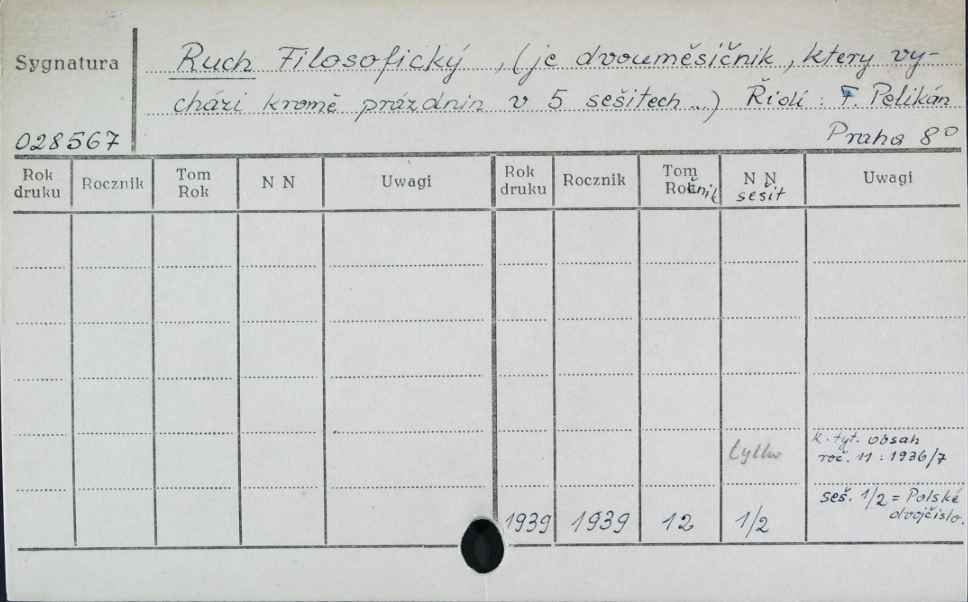 Sygnatura
Ruch Filosofický, (je dvouměsíčnik, ktery vy-
chází kromě prázdnin v 5 sešitech...) Řídí: F. Pelikán
028567
Praha 8°
Rok druku Rocznik Tom Rok N N Uwagi Rok druku Rocznik Tom Ročnik N N sešit Uwagi
tylko k. tyt. obsah
roč. 11 : 1936/7
seš. 1/2 = Polské
dvojčíslo.
1939 1939 12 1/2